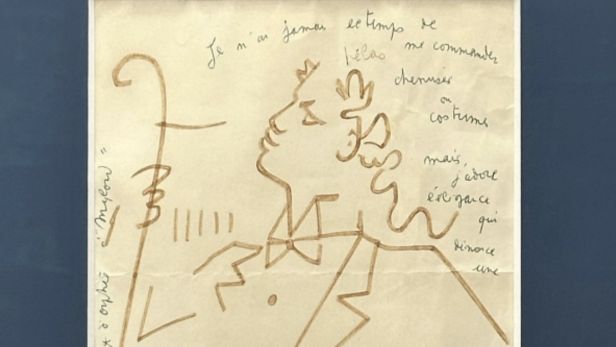 Je n'ai jamais le temps de
hélas me commander
chemises
ou
costumes
mais,
j'adore
élégance
qui
dénonce
une
d'Orphée à "Mylord"